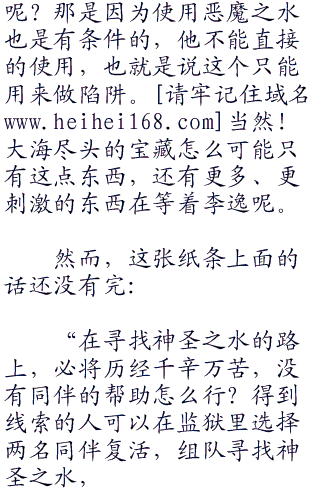 呢？那是因为使用恶魔之水
也是有条件的，他不能直接
的使用，也就是说这个只能
用来做陷阱。[请牢记住域名
www.heihei168.com]当然！
大海尽头的宝藏怎么可能只
有这点东西，还有更多、更
刺激的东西在等着李逸呢。
然而，这张纸条上面的
话还没有完：
“在寻找神圣之水的路
上，必将历经千辛万苦，没
有同伴的帮助怎么行？得到
线索的人可以在监狱里选择
两名同伴复活，组队寻找神
圣之水，